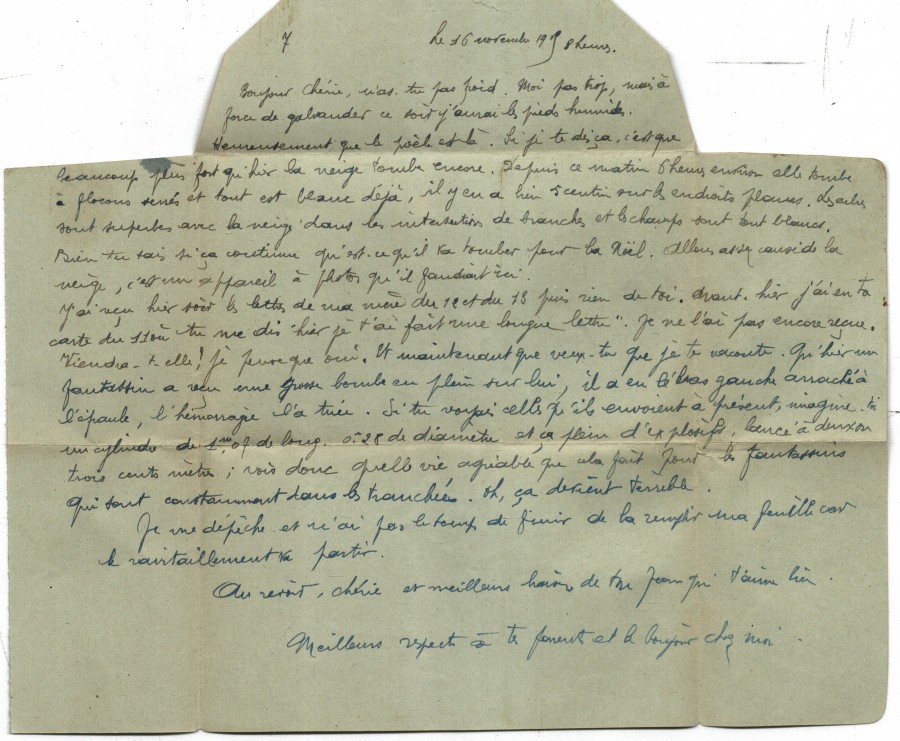 7 Le 16 novembre 1915 8 heures.
Bonjour Chérie, n'as-tu pas froid. Moi pas trop, mais à
force de galvauder ce soir j'aurai les pieds humides.
Heureusement que le poële est là. Si je te dis ça, c'est que
beaucoup plus fort qu'hier la neige tombe encore. Depuis ce matin 6 heures environ elle tombe
à flocons serrés et tout est blanc déjà, il y en a bien 5 centim sur les endroits planes. Les arbres
sont superbes avec la neige dans les intersections de branches et les champs sont tout blancs.
Bien tu sais si ça continue qu'est-ce qu'il va tomber pour la Noël. Allons assez causé de la
neige, c'est un appareil à photos qu'il faudrait ici.
J'ai reçu hier soir les lettres de ma mère du 12 et du 13 puis rien de toi. Avant-hier j'ai eu ta
carte du 11 où tu me dis "hier je t'ai fait une longue lettre". Je ne l'ai pas encore reçue.
Viendra-t-elle! Je pense que oui. Et maintenant que veux-tu que je te raconte. Qu'hier un
fantassin a reçu une grosse bombe en plein sur lui, il a eu le bras gauche arraché à
l'épaule, l'hémoragie l'a tuée. Si tu voyais celles qu'ils envoient à présent, imagine-toi
un cylindre de 1m,07 de long. 0.28 de diamètre et ça plein d'explosifs, lancé à deux ou
trois cents mètre; vois donc quelle vie agréable que cela fait pour les fantassins
qui sont constamment dans les tranchées. Oh, ça devient terrible.
Je me dépêche et n'ai pas le temps de finir de la remplir ma feuille car
le ravitaillement va partir.
Au revoir, chérie et meilleurs baisers de ton Jean qui t'aime bien.
Meilleurs respects à tes parents et le bonjour chez moi.